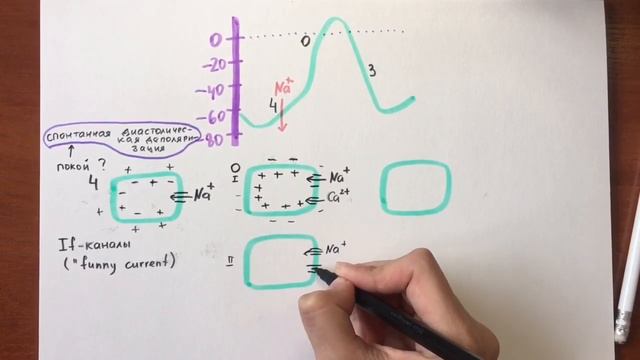 0
-20
-40
-60
-80
0
3
4
Na+
спонтанная диастоличес-
кая деполяри-
зация
покой ?
4
Na+
0
I
Na+
Ca2+
If-каналы
("funny current)
II
Na+